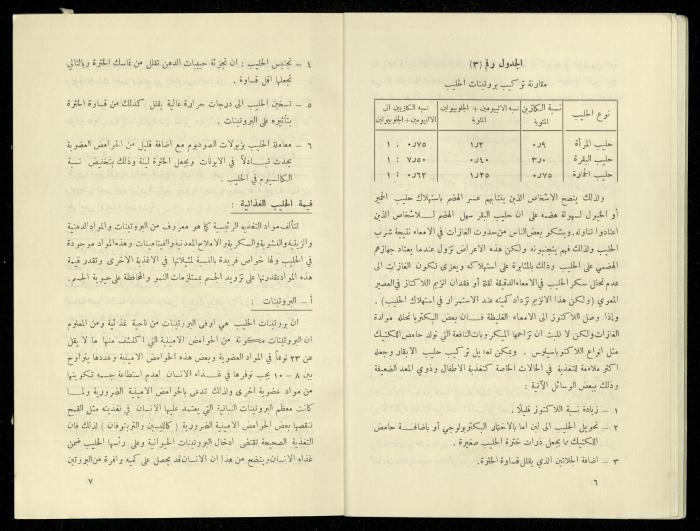 الجدول رقم (٣)
مقارنة تركيب بروتينات الحليب
نوع الحليب | نسبة الكازين المئوية | نسبة الالبيومين + الجلوبيولين المئوية | نسبة الكازيين الى الالبيومين + الجلوبيولين
حليب المرأة | ٠٫٩ | ١٫٢ | ٠٫٧٥ : ١
حليب البقرة | ٣٫٠ | ٠٫٤٠ | ٧٫٥٠ : ١
حليب الحمارة | ٠٫٧٥ | ١٫٢٥ | ٠٫٦٢ : ١
ولذلك ينصح الاشخاص الذين ينتابهم عسر الهضم باستهلاك حليب الحمير
أو الخيول لسهولة هضمه على ان حليب البقر سهل الهضم للاشخاص الذين
اعتادوا تناوله. ويشتكو بعض الناس من حدوث الغازات في الامعاء نتيجة شرب
الحليب ولذلك فهم يتجنبونه ولكن هذه الاعراض تزول عندما يعتاد جهازهم
الهضمي على الحليب وذلك بالمثابرة على استهلاكه ويعزى تكون الغازات الى
عدم تحلل سكر الحليب في الامعاء الدقيقة لقلة أو فقدان انزيم اللاكتوز في العصير
المعوي (ولكن هذا الانزيم تزداد كميته عند الاستمرار في استهلاك الحليب).
واذا وصل اللاكتوز الى الامعاء الغليظة فان بعض البكتريا تحلله مولدة
الغازات ولكن لا تلبث ان تزاحمها الميكروبات النافعة التي تولد حامض اللكتيك
مثل انواع اللاكتوباسيلوس. ويمكن تعديل تركيب حليب الابقار وجعله
اكثر ملاءمة للتغذية في الحالات الخاصة كتغذية الاطفال وذوي المعد الضعيفة
وذلك ببعض الوسائل الآتية :
١ – زيادة نسبة اللاكتوز قليلا.
٢ – تحويل الحليب الى لبن اما بالاختمار البكتريولوجي أو باضافة حامض
اللكتيك مما يجعل ذرات خثرة الحليب صغيرة.
٣ – اضافة الجلاتين الذي يقلل قساوة الخثرة.
٦
٤ – تجنيس الحليب : ان تجزئة حبيبات الدهن تقلل من تماسك الخثرة وبالتالي
تجعلها اقل قساوة.
٥ – تسخين الحليب الى درجات حرارة عالية يقلل كذلك من قساوة الخثرة
بتأثيره على البروتينات.
٦ – معاملة الحليب بزيولات الصوديوم مع اضافة قليل من الحوامض العضوية
يحدث تبادلا في الايونات ويجعل الخثرة لينة وذلك بتخفيض نسبة
الكالسيوم في الحليب.
قيمة الحليب الغذائية :
تتألف مواد التغذية الرئيسية كما هو معروف من البروتينات والمواد الدهنية
والزيتية والنشوية والسكرية والاملاح المعدنية والفيتامينات وهذه المواد موجودة
في الحليب ولها خواص فريدة بالنسبة لمثيلاتها في الاغذية الاخرى وتقدر قيمة
هذه المواد بمقدرتها على تزويد الجسم بمستلزمات النمو والمحافظة على حيوية الجسم.
أ – البروتينات :
ان بروتينات الحليب هي اوفى البروتينات من ناحية غذائية ومن المعلوم
ان البروتينات متكونة من الحوامض الامينية التي اكتشف منها ما لا يقل
عن ٢٣ نوعاً في المواد العضوية وبعض هذه الحوامض الامينية وعددها يتراوح
بين ٨ – ١٠ يجب توفرها في غذاء الانسان لعدم استطاعة جسمه تكوينها
من مواد عضوية أخرى ولذلك تدعى بالحوامض الامينية الضرورية ولما
كانت معظم البروتينات النباتية التي يعتمد عليها الانسان في تغذيته مثل القمح
تنقصها بعض الحوامض الامينية الضرورية (كالليسين والتربتوفان) لذلك فان
التغذية الصحيحة تقتضي ادخال البروتينات الحيوانية وعلى رأسها الحليب ضمن
غذاء الانسان ويتضح من هذا ان الانسان قد يحصل على كمية وافرة من البروتين
٧